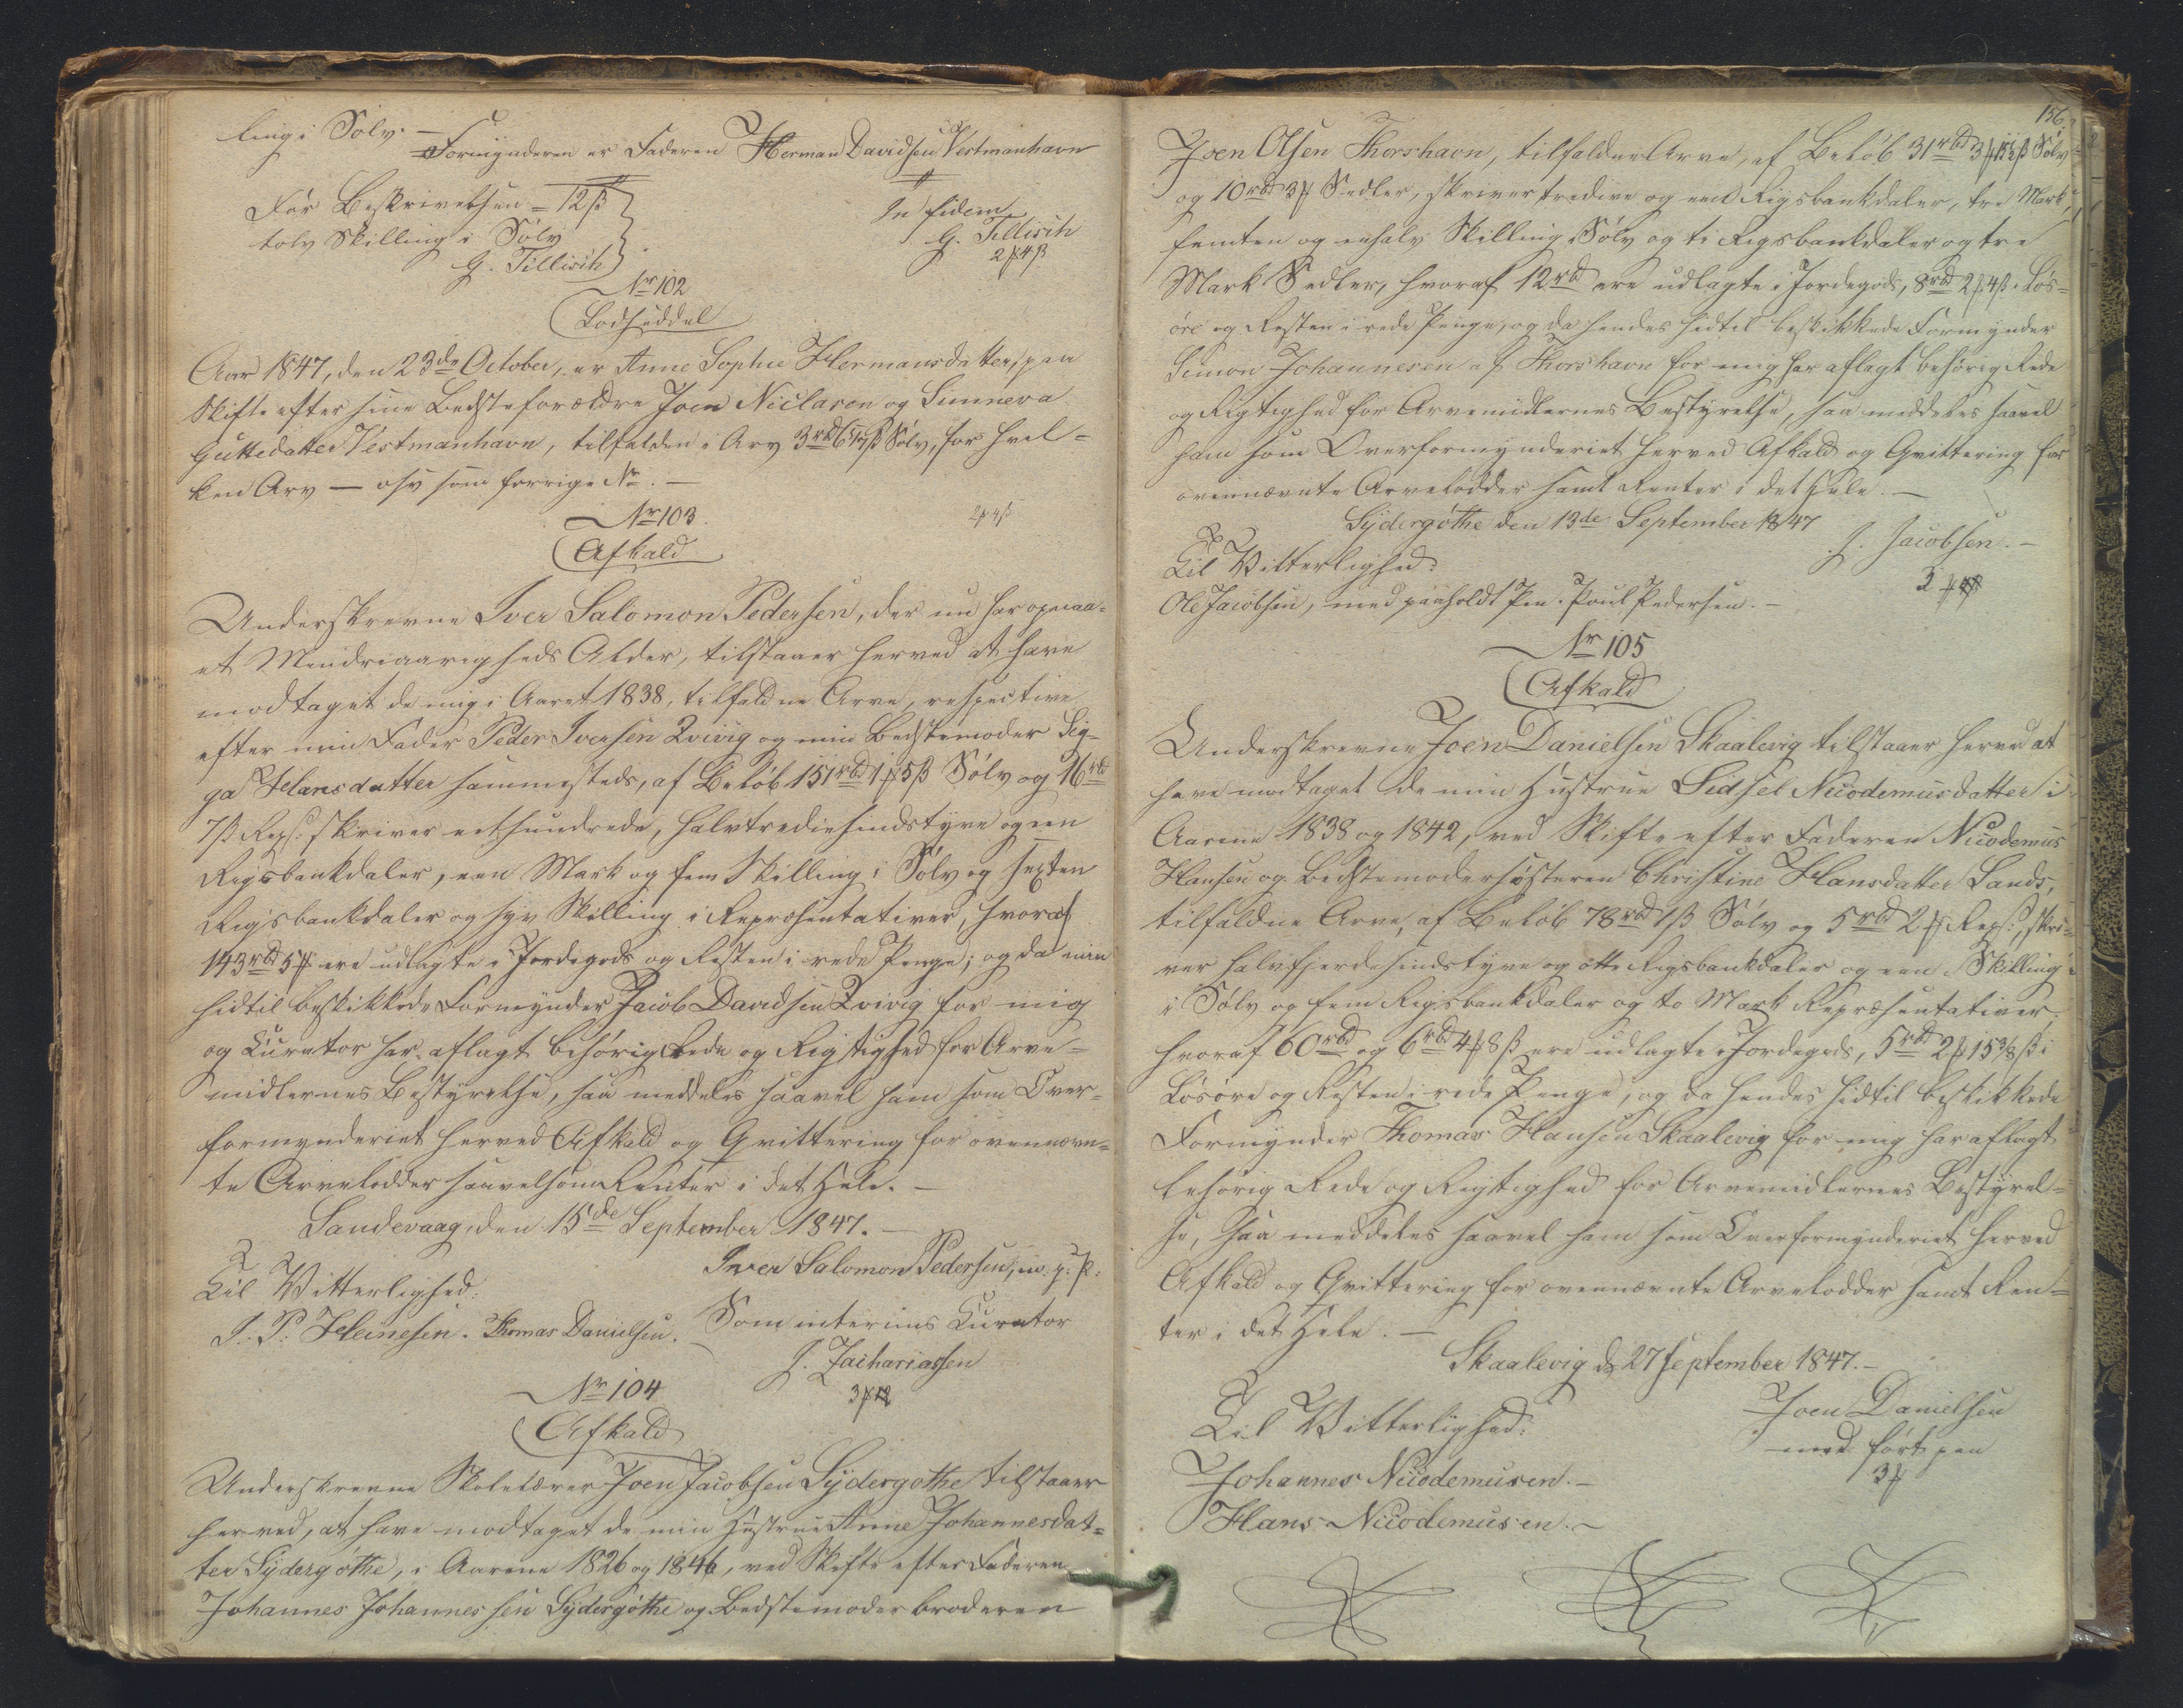 ling i Sølv. —
Formynderen er Faderen Herman Davidsen Vestmanhavn
For Beskrivelsen = 12 ß
tolv Skilling i Sølv
G. Tillisch
In fidem
G. Tillisch
2 ℳ 4 ß
No 102
Lodseddel
Aar 1847, den 23de October, er Anne Sophie Hermansdatter, paa
Skifte efter sine Bedsteforældre Joen Niclasen og Sunneva
Guttesdatter Vestmanhavn, tilfalden i Arv 3 rbd 6 ß Sølv, for hvil-
ken Arv — osv som forrige No. —
2 ℳ 4 ß
No 103.
Afkald
Underskrevne Iver Salomon Pedersen, der nu har opnaa-
et Mindreaarigheds Alder, tilstaaer herved at have
modtaget de mig i Aaret 1838, tilfaldne Arve, respective
efter min Fader Peder Iversen Qvivig og min Bedstemoder Sig-
ga Hansdatter sammesteds, af Beløb 151 rbd 1 ℳ 5 ß Sølv og 16 rbd
7 ß Reps: skriver eethundrede, halvtrediesindstyve og een
Rigsbankdaler, een Mark og fem Skilling i Sølv og sexten
Rigsbankdaler og syv Skilling i Repræsentativer, hvoraf
143 rbd 5 ℳ ere udlagte i Jordegods og Resten i rede Penge; og da min
hidtil beskikkede Formynder Jacob Davidsen Qvivig for mig
og Curator har aflagt behørig Rede og Rigtighed for Arve-
midlernes Bestyrelse, saa meddeles saavel ham som Over-
formynderiet herved Afkald og Qvittering for ovennævn-
te Arvelodder saavelsom Renter i det Hele. —
Sandevaag, den 15de September 1847. —
Iver Salomon Pedersen, m. p. P.
Til Vitterlighed:
J. P. Heinesen. Thomas Danielsen.
Som interims Curator
J. Zachariassen
3 ℳ
No 104
Afkald
Underskrevne Skolelærer Joen Jacobsen Sydergøthe tilstaaer
herved, at have modtaget de min Hustrue Anne Johannesdat-
ter Sydergøthe, i Aarene 1826 og 1846, ved Skifte efter Faderen
Johannes Johannessen Sydergøthe og Bedstemoderbroderen
156
Joen Olsen Thorshavn, tilfaldne Arve, af Beløb 31 rbd 3 ℳ 15½ ß Sølv
og 10 rbd 3 ℳ Sedler, skriver tredive og een Rigsbankdaler, tre Mark,
femten og enhalv Skilling Sølv og ti Rigsbankdaler og tre
Mark Sedler, hvoraf 12 rbd ere udlagte i Jordegods, 8 rbd 2 ℳ 4 ß i Løs-
øre og Resten i rede Penge, og da hendes hidtil beskikkede Formynder
Simon Johannesen af Thorshavn for mig har aflagt behørig Rede
og Rigtighed for Arvemidlernes Bestyrelse, saa meddeles saavel
ham som Overformynderiet herved Afkald og Qvittering for
ovennævnte Arvelodder samt Renter i det Hele. —
Sydergøthe den 13de September 1847
J. Jacobsen. —
Til Vitterlighed:
3 ℳ
Ole Jacobsen, med paaholdt Pen. Poul Pedersen. —
No 105
Afkald
Underskrevne Joen Danielsen Skaalevig tilstaaer herved at
have modtaget de min Hustrue Sidsel Nicodemusdatter i
Aarene 1838 og 1842, ved Skifte efter Faderen Nicodemus
Hansen og Bedstemodersøsteren Christine Hansdatter Sands,
tilfaldne Arve, af Beløb 78 rbd 1 ß Sølv og 5 rbd 2 ℳ Reps:, skri-
ver halvfjerdesindstyve og otte Rigsbankdaler og een Skilling
i Sølv og fem Rigsbankdaler og to Mark Repræsentativer.
hvoraf 60 rbd og 6 rbd 4 ℳ 8 ß ere udlagte i Jordegods, 5 rbd 2 ℳ 15⅜ ß i
Løsøre og Resten i rede Penge, og da hendes hidtil beskikkede
Formynder Thomas Hansen Skaalevig for mig har aflagt
behørig Rede og Rigtighed for Arvemidlernes Bestyrel-
se, saa meddeles saavel ham som Overformynderiet herved
Afkald og Qvittering for ovennævnte Arvelodder samt Ren-
ter i det Hele. —
Skaalevig d 27 September 1847. —
Til Vitterlighed:
Joen Danielsen
med ført pen
Johannes Nicodemusen. —
3 ℳ
Hans Nicodemusen. —